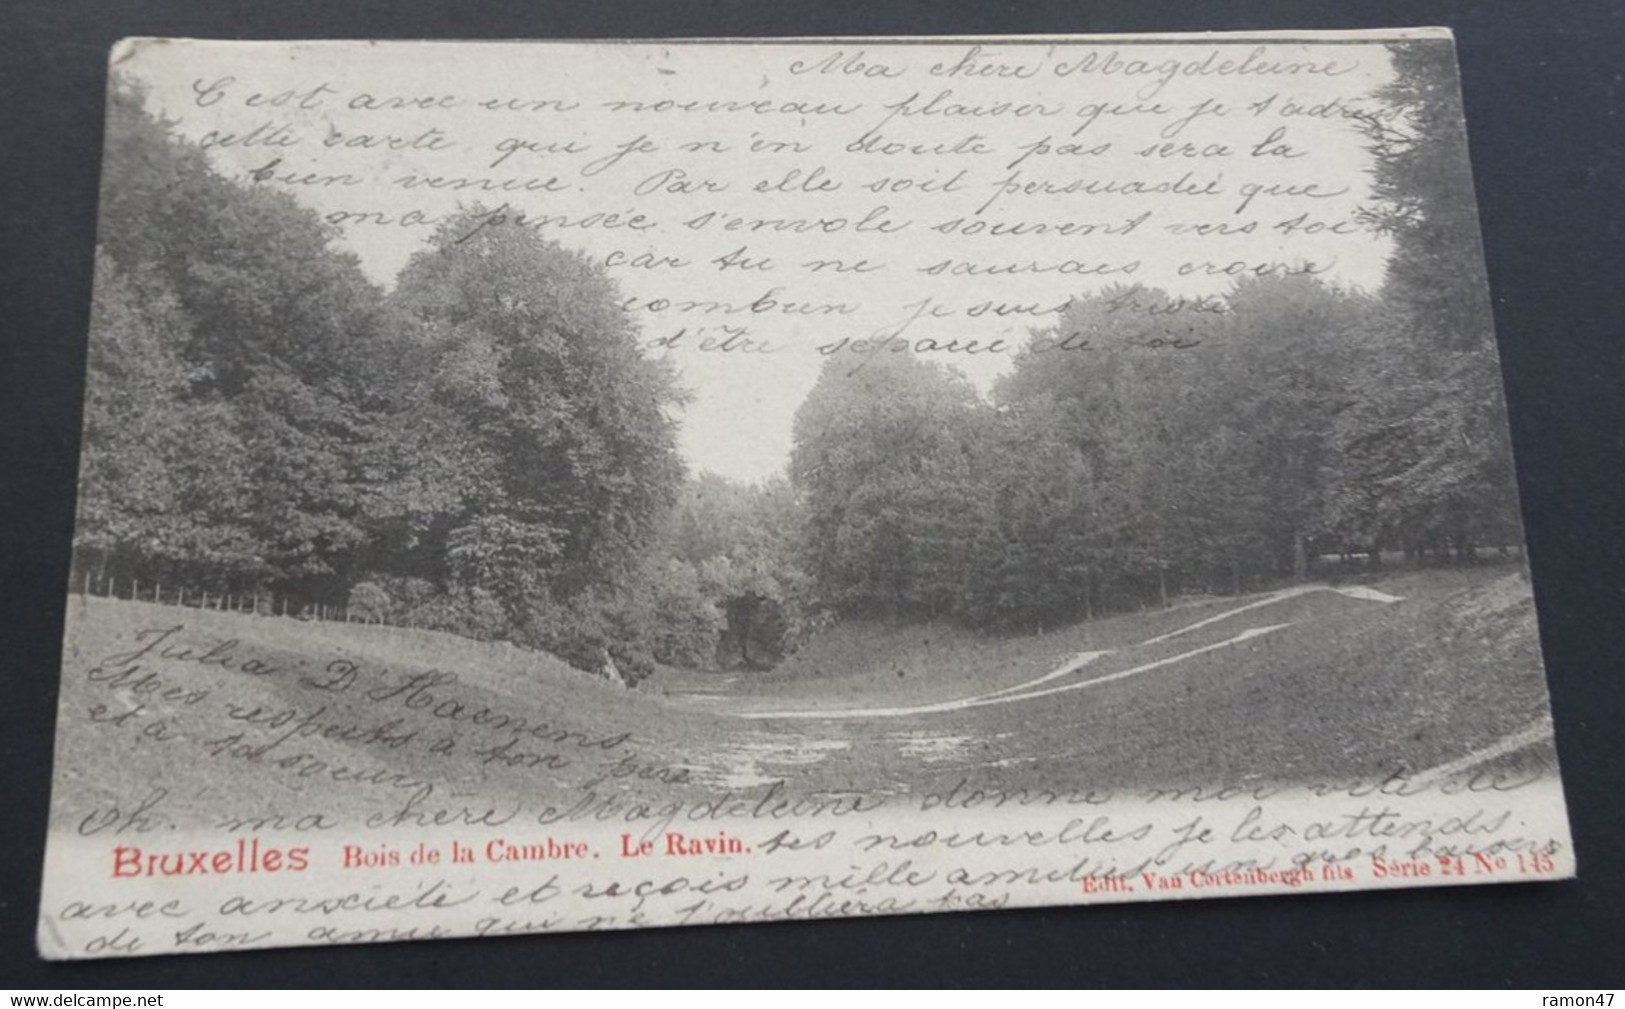 Ma chère Magdeleine
C'est avec un nouveau plaisir que je t'adresse
cette carte qui je n'en doute pas sera la
bien venue. Par elle soit persuadée que
ma pensée s'envole souvent vers toi
car tu ne saurais croire
combien je suis triste
d'être separé de toi
Julia D'Haenens.
Mes respects à ton père
et à ta soeur
Oh. ma chère Magdeleine donne moi vite de
tes nouvelles je les attends.
Bruxelles Bois de la Cambre. Le Ravin.
avec anxiété et reçois mille amitiés un gros baisers
Edit. Van Cortenbergh fils Série 24 No 145
de ton amie qui ne t'oubliera pas
delcampe.net
ramon47